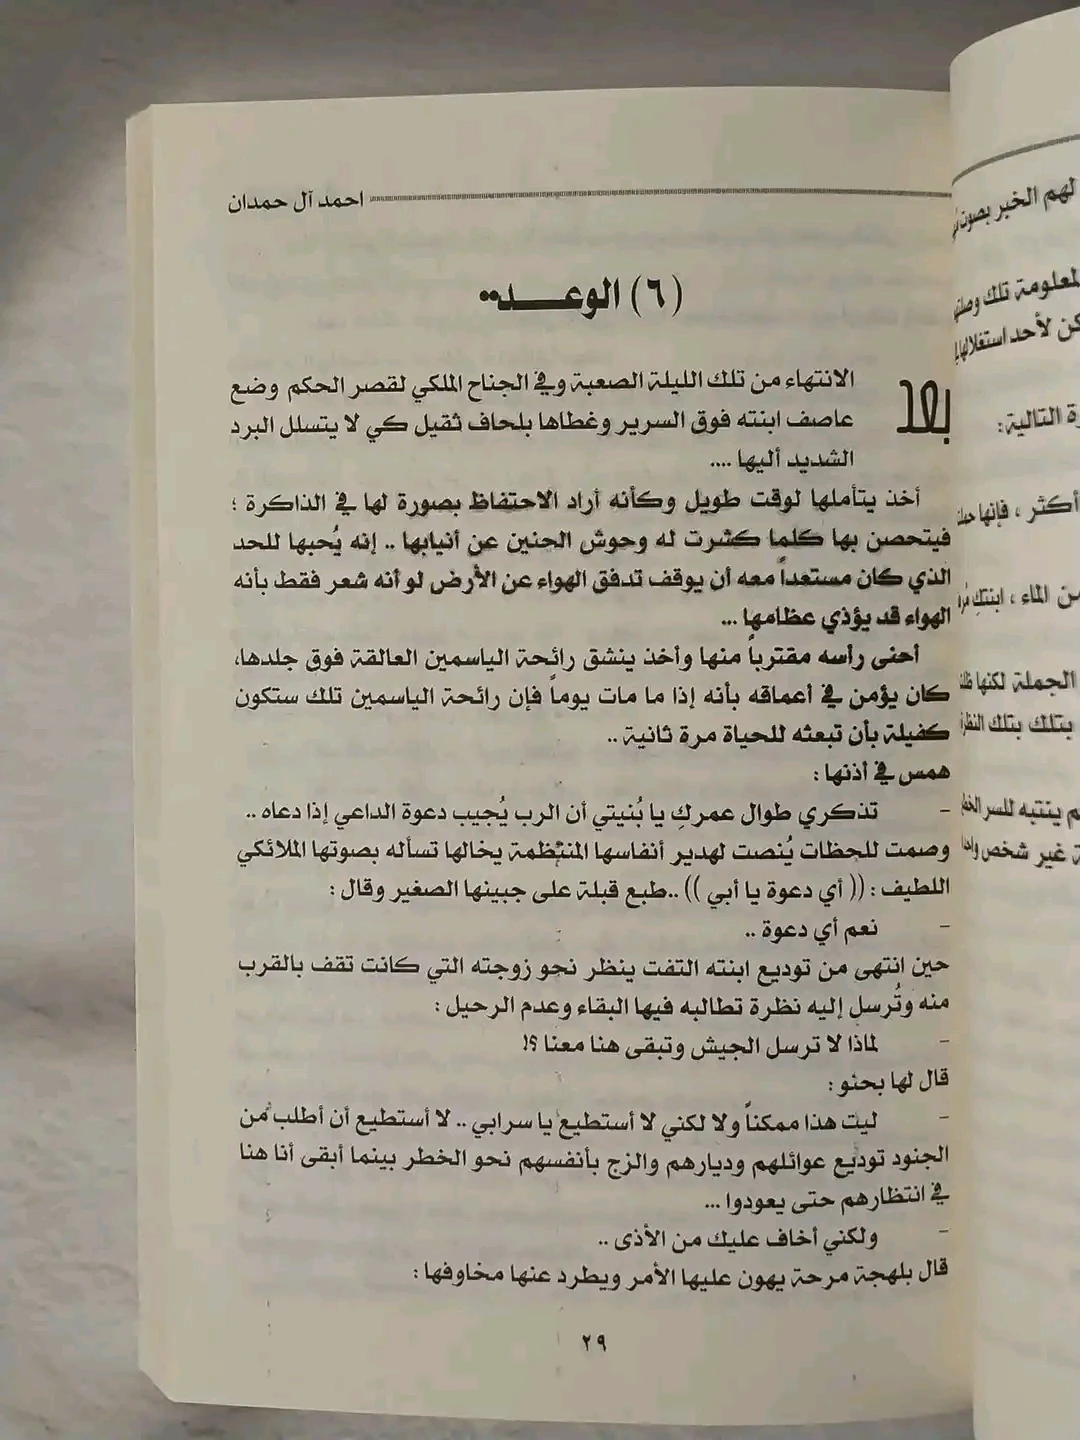 احمد آل حمدان
(٦) الوعـــد..
بعد الانتهاء من تلك الليلة الصعبة وفي الجناح الملكي لقصر الحكم وضع
عاصف ابنته فوق السرير وغطاها بلحاف ثقيل كي لا يتسلل البرد
الشديد أليها ....
أخذ يتأملها لوقت طويل وكأنه أراد الاحتفاظ بصورة لها في الذاكرة ؛
فيتحصن بها كلما كشرت له وحوش الحنين عن أنيابها .. إنه يُحبها للحد
الذي كان مستعداً معه أن يوقف تدفق الهواء عن الأرض لو أنه شعر فقط بأنه
الهواء قد يؤذي عظامها ...
أحنى رأسه مقترباً منها وأخذ ينشق رائحة الياسمين العالقة فوق جلدها،
كان يؤمن في أعماقه بأنه إذا ما مات يوماً فإن رائحة الياسمين تلك ستكون
كفيلة بأن تبعثه للحياة مرة ثانية ..
همس في أذنها :
- تذكري طوال عمركِ يا بُنيتي أن الرب يُجيب دعوة الداعي إذا دعاه ..
وصمت للحظات يُنصت لهدير أنفاسها المنتظمة يخالها تسأله بصوتها الملائكي
اللطيف : (( أي دعوة يا أبي )) ..طبع قبلة على جبينها الصغير وقال :
- نعم أي دعوة ..
حين انتهى من توديع ابنته التفت ينظر نحو زوجته التي كانت تقف بالقرب
منه وتُرسل إليه نظرة تطالبه فيها البقاء وعدم الرحيل :
- لماذا لا ترسل الجيش وتبقى هنا معنا ؟!
قال لها بحنو :
- ليت هذا ممكناً ولا لكني لا أستطيع يا سرابي .. لا أستطيع أن أطلب من
الجنود توديع عوائلهم وديارهم والزج بأنفسهم نحو الخطر بينما أبقى أنا هنا
في انتظارهم حتى يعودوا ...
- ولكني أخاف عليك من الأذى ..
قال بلهجة مرحة يهون عليها الأمر ويطرد عنها مخاوفها :
٢٩
لهم الخبر بصوت
لمعلومة تلك
لأحد استغلالها
ة التالية :
أكثر ، فإنها
ن الماء ، ابنتكِ
الجملة لكنها
بتلك بتلك
م ينتبه للسر
ة غير شخص